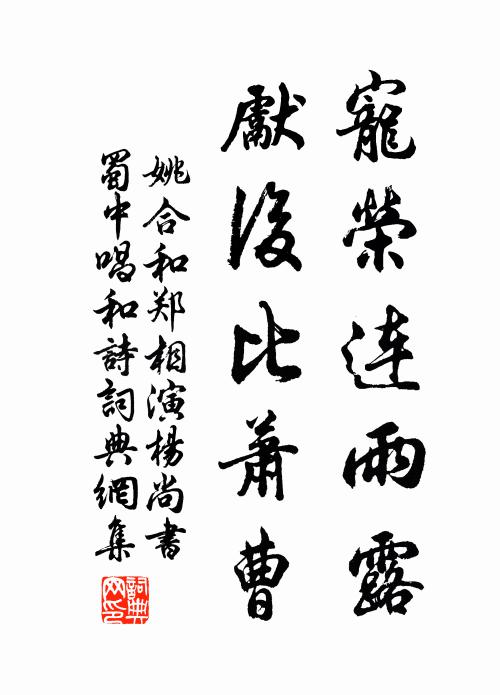 寵榮連雨露
獻後比蕭曹
姚合和郑相演楊尚書
蜀中唱和詩詞典網集
詞典网印